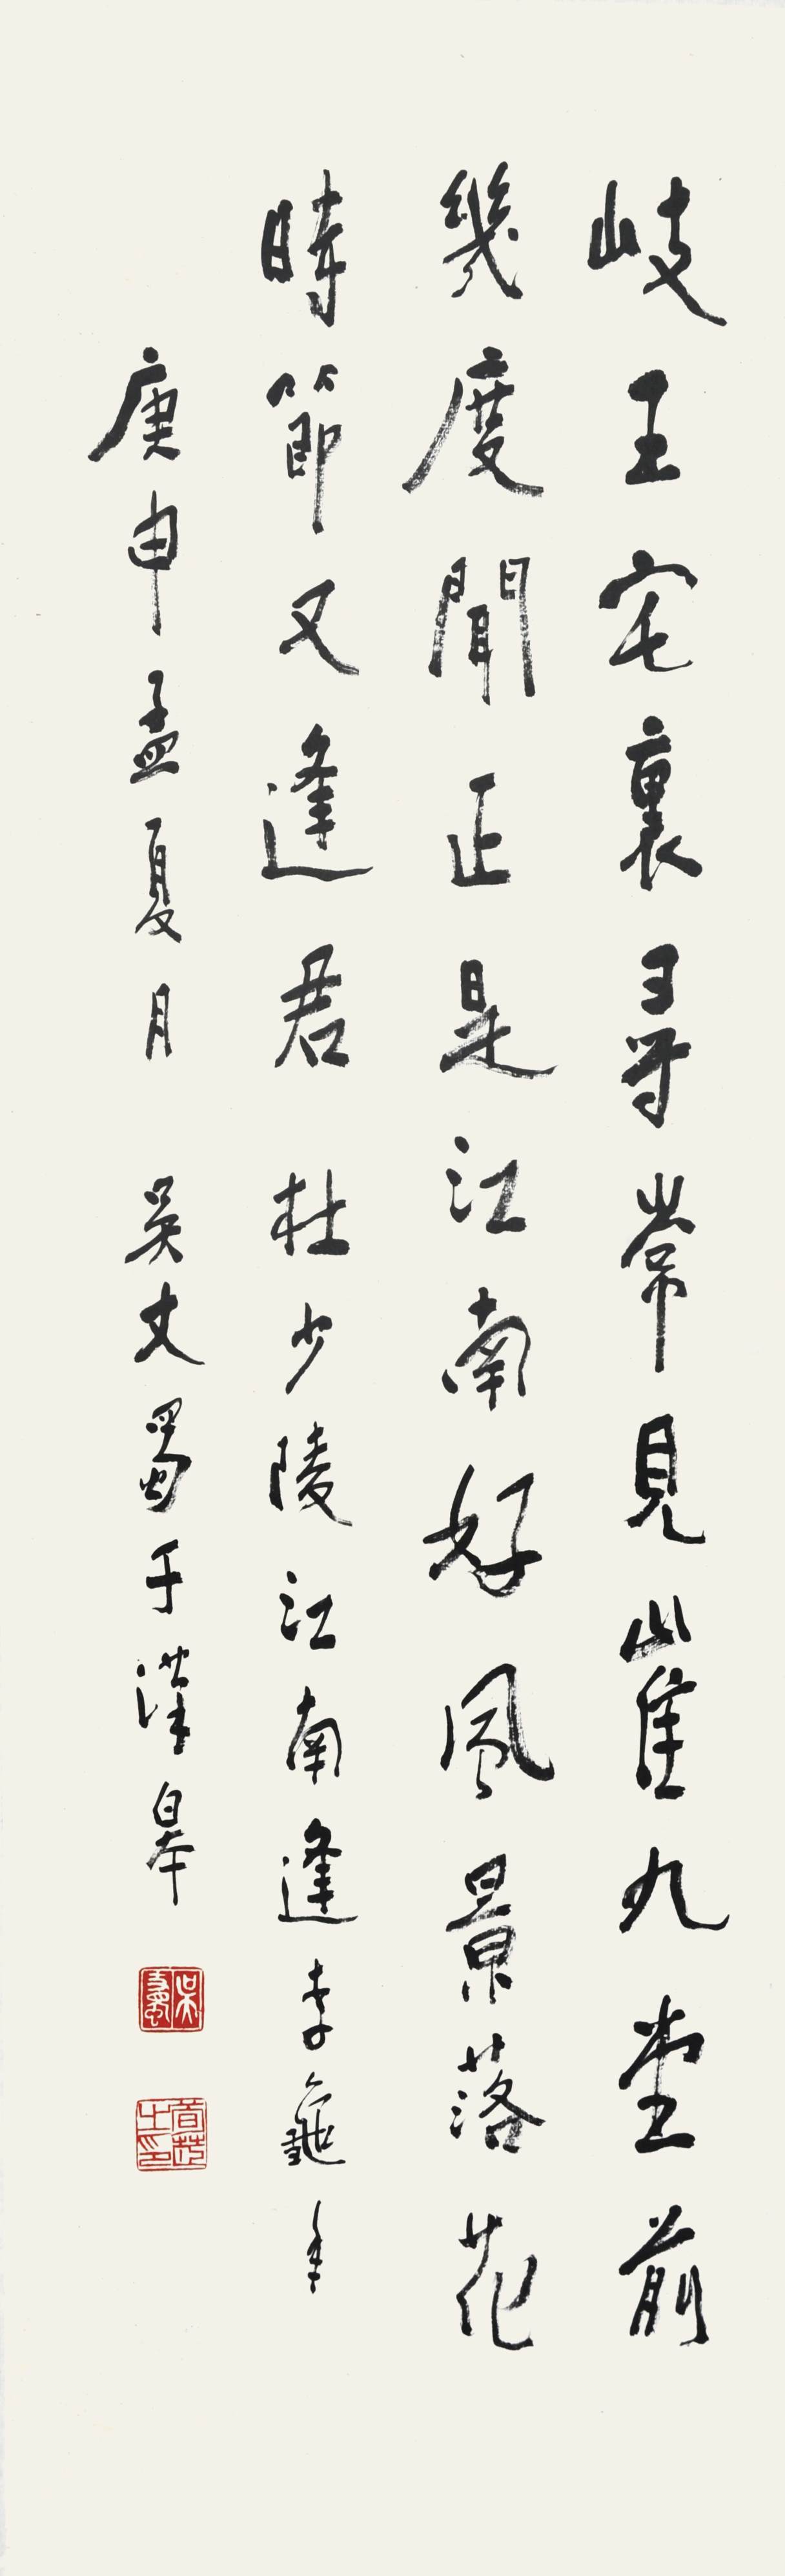 岐王宅裏尋常見崔九堂前
幾度聞正是江南好風景落花
時節又逢君 杜少陵江南逢李龜年
庚申孟夏月 吳丈蜀于漢皋
吳丈蜀